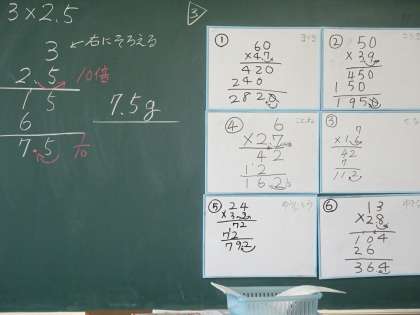 3×2.5
3
2.5
15
6
7.5
←右にそろえる
10倍
1/10
7.5g
3
①
60
×4.7
420
240
282.0
②
50
×3.9
450
150
195.0
④
6
×2.7
42
12
16.2
③
7
×1.6
42
7
11.2
⑤
24
×3.3
72
72
79.2
⑥
13
×2.8
104
26
36.4